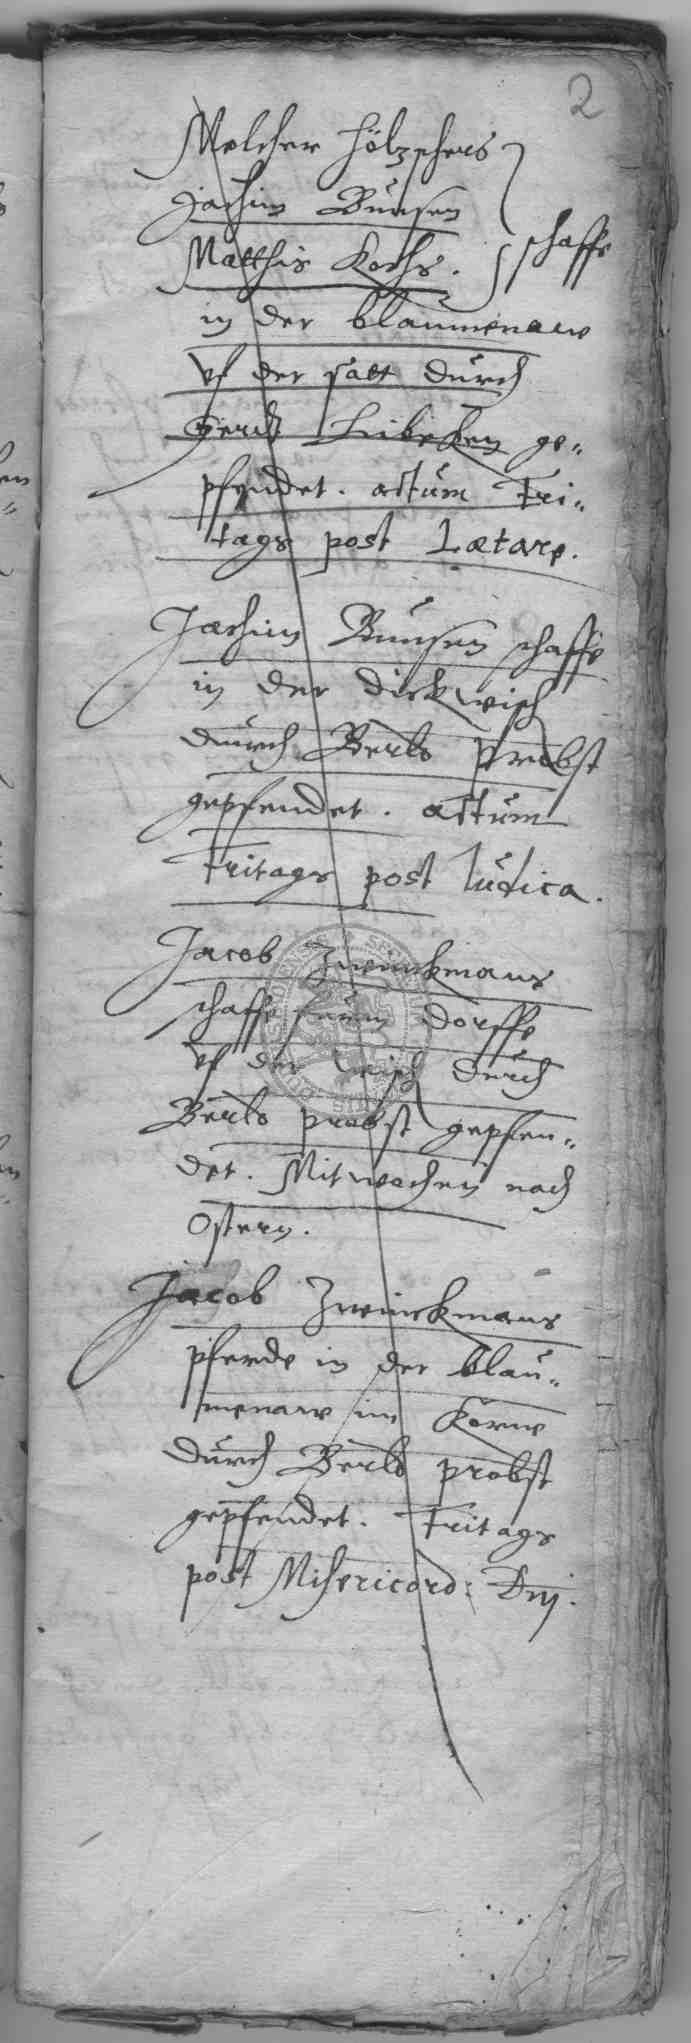 2
Melcher Hölzschers
Jachim Bunsen
Matthis Kochs. schaffe
in der blaumenaw
vf der satt durch
Gerdt Libeken ge„
pfendet. actum Fri„
tags post Lætare.
Jachim Bunsen schaffe
in der dickwisch
durch Berls Probst
gepfendet. actum
Fritags post Iudica.
Jacob Zwinckmans
schaffe dorffe
vf der wisch durch
Berls probst gepfen„
det. Mitwochen nach
Ostern.
Jacob Zwinckmans
pferde in der blau„
menaw im Korne
durch Berls probst
gepfendet. Fritags
post Misericord: Dnj.